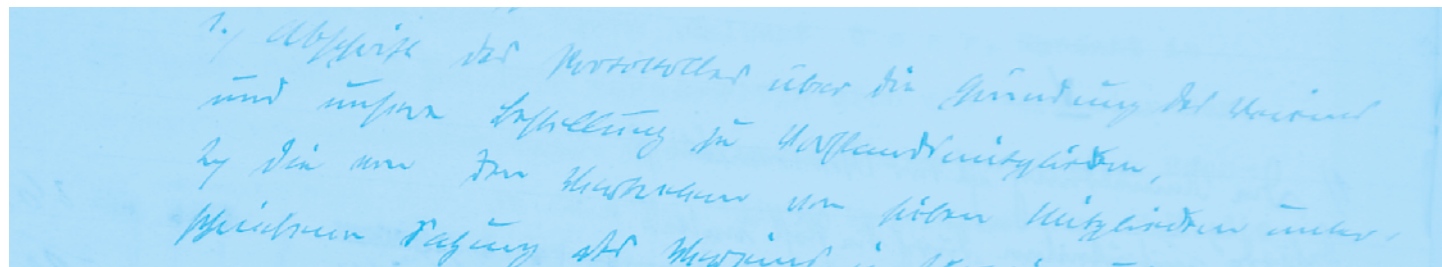 1.) Abschrift des Protokolles über die Gründung des Vereins
und unsere Bestellung zu Vorstandsmitgliedern,
2.) die von den von sieben Mitgliedern unter-
Satzung des Vereins in